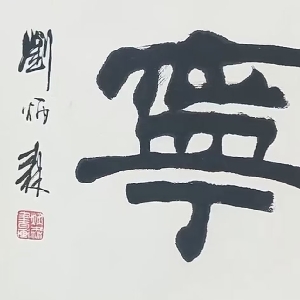 寧
劉炳森